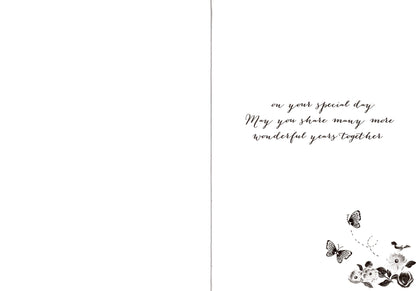 on your special day
May you share many more
wonderful years together